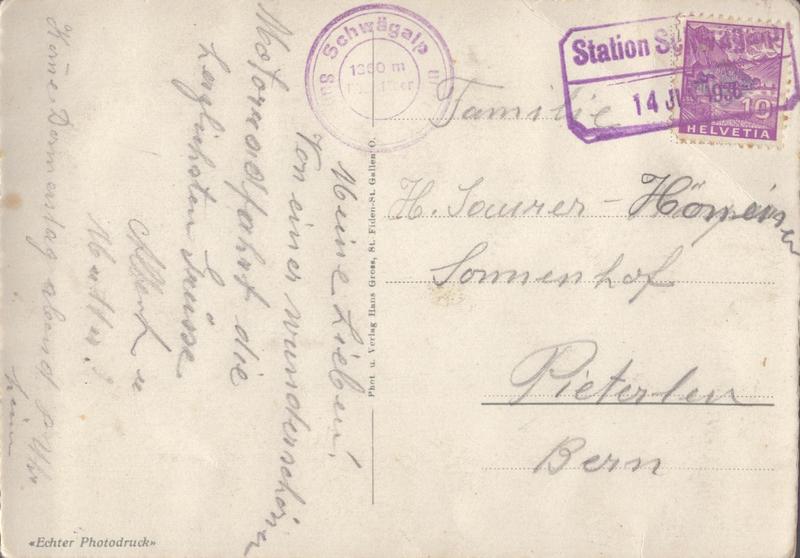 Meine Lieben!
Von einer wunderschönen
Motorradfahrt die
herzlichsten Grüsse
Albert u
Mutter.
Komme Donnerstag abend 8 Uhr
heim
Schwägalp
1360 m
Station
14 1936
10
HELVETIA
Phot. u. Verlag Hans Gross, St. Fiden-St. Gallen O.
Familie
H. Saurer-
Sonnenhof
Pieterlen
Bern
«Echter Photodruck»